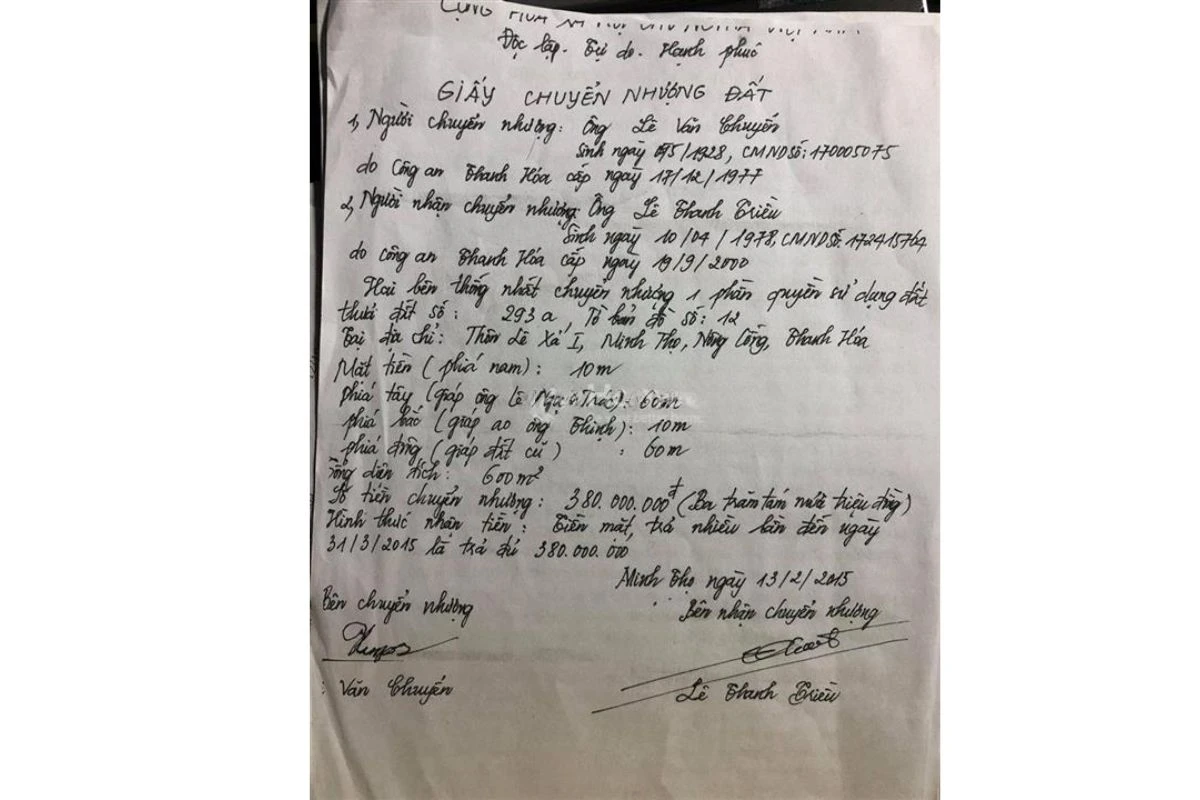 CỘNG HÒA XÃ HỘI CHỦ NGHĨA VIỆT NAM
Độc lập - Tự do - Hạnh phúc
GIẤY CHUYỂN NHƯỢNG ĐẤT
1, Người chuyển nhượng: Ông Lê Văn Chuyến
Sinh ngày /5/1928, CMND Số: 170005075
do Công an Thanh Hóa cấp ngày 17/12/1977
2, Người nhận chuyển nhượng: Ông Lê Thanh Triều
Sinh ngày 10/04/1978, CMND Số: 172415764
do công an Thanh Hóa cấp ngày 19/9/2000
Hai bên thống nhất chuyển nhượng 1 phần quyền sử dụng đất
thửa đất số: 293a, Tờ bản đồ số: 12
Tại địa chỉ: Thôn Lê Xá I, Minh Thọ, Nông Cống, Thanh Hóa
Mặt tiền (phía nam): 10m
phía tây (giáp ông Lê Ngọc): 60m
phía bắc (giáp ao ông Thịnh): 10m
phía đông (giáp đất cũ): 60m
Tổng diện tích: 600m²
Số tiền chuyển nhượng: 380.000.000đ (Ba trăm tám mươi triệu đồng)
Hình thức nhận tiền: Tiền mặt, trả nhiều lần đến ngày
31/3/2015 là trả đủ 380.000.000
Minh Thọ ngày 13/2/2015
Bên chuyển nhượng
Bên nhận chuyển nhượng
Văn Chuyến
Lê Thanh Triều